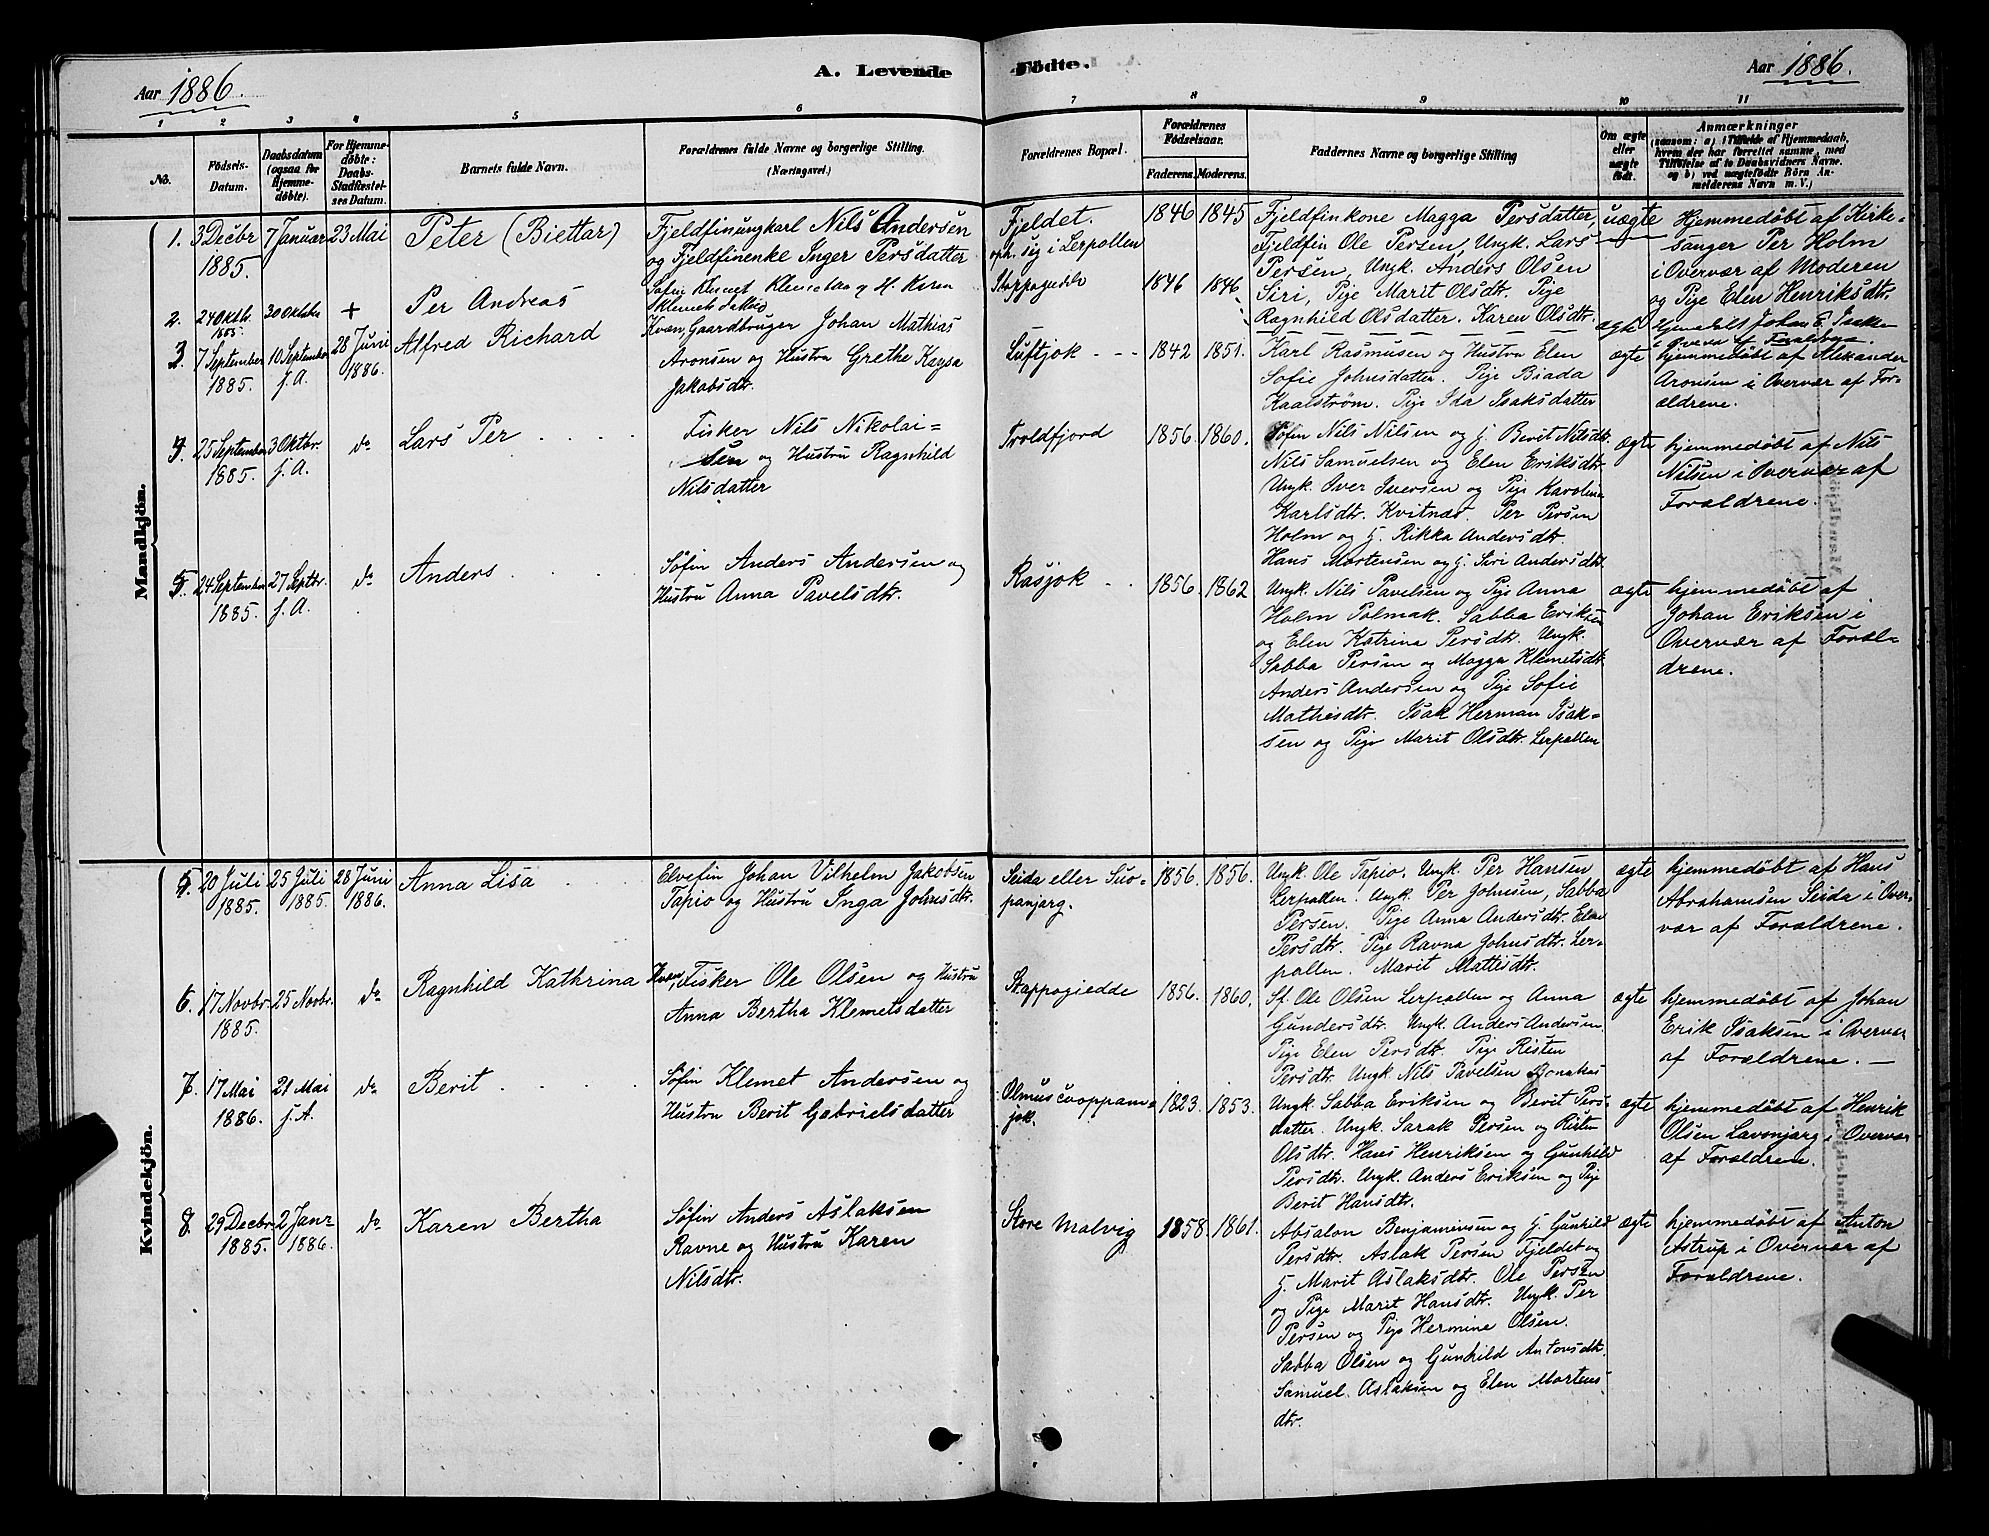 Aar 1886.
A. Levende
Fødte.
Aar 1886.
1 2 3 4 5 6 7 8 9 10 11
No.
Fødsels-
Datum.
Daabsdatum
(ogsaa for
Hjemme-
døbte).
For Hjemme-
døbte:
Daabs-
Stadfæstel-
ses Datum.
Barnets fulde Navn.
Forældrenes fulde Navne og borgerlige Stilling.
(Næringsvei.)
Forældrenes Bopæl.
Forældrenes
Fødselsaar.
Faderens. Moderens.
Faddernes Navne og borgerlige Stilling
Om ægte
eller
uægte
født.
Anmærkninger
(saasom: a) i Tilfælde af Hjemmedaab,
hvem der har forrettet samme, med
Tilføielse af to Daabsvidners Navne.
og b) ved uægtefødte Börn An-
melderens Navn m. V.)
Mandkjön.
1. 3 Decbr
1885.
7 Januar
23 Mai
Peter (Biettar)
Fjeldfinungkarl Nils Andersen
og Fjeldfinenke Inger Persdatter
Fjeldet.
oph. sig i Lerpollen
1846 1845
Fjeldfinkone Magga Persdatter,
Fjeldfin Ole Persen, Ungk. Lars
Persen, Ungk. Anders Olsen
Siri, Pige Marit Olsdtr. Pige
Ragnhild Olsdatter. Karen Olsdtr.
uægte
Hjemmedøbt af Kirke-
sanger Per Holm
i Overvær af Moderen
og Pige Elen Henriksdtr.
2. 24 Oktb.
1885.
30 Oktbr
+
Per Andreas
Søfin Klemet Klemetsen og H. Karen
Klemetsdatter
Stappogiedde
1846 1846
ægte
Hjemdøbt Johan E. Isaksen
i Overv. af Forældrene.
3 7 September
1885.
10 September
f. A.
28 Juni
1886.
Alfred Richard
Kvæn, Gaardbruger Johan Mathias
Aronsen og Hustru Grethe Kaysa
Jakobsdtr.
Luftjok
1842 1851.
Karl Rasmusen og Hustru Elen
Sofie Johnsdatter. Pige Biada
Kaalström. Pige Ida Isaksdatter
ægte
hjemmedøbt af Alexander
Aronsen i Overvær af For-
ældrene.
4. 25 September
1885.
3 Oktbr.
f. A.
do
Lars Per
Fisker Nils Nikolai-
sen og Hustru Ragnhild
Nilsdatter
Troldfjord
1856. 1860.
Søfin Nils Nilsen og H. Berit Nilsdtr.
Nils Samuelsen og Elen Eriksdtr.
Ungk. Iver Iversen og Pige Karolina
Karlsdtr. Kvitnæs. Per Persen
Holm og H. Rikka Andersdtr.
Hans Mortensen og H. Siri Andersdtr.
ægte
hjemmedøbt af Nils
Nilsen i Overvær af
Forældrene.
5. 24 September
1885.
27 Septbr.
f. A.
do
Anders
Søfin Anders Andersen og
Hustru Anna Pavelsdtr.
Rasjok
1856. 1862
Ungk. Nils Pavelsen og Pige Anna
Holm Polmak. Sabba Eriksen
og Elen Katrina Persdtr. Ungk.
Sabba Persen og Magga Klemetsdtr.
Anders Andersen og Pige Sofie
Mathisdtr. Isak Herman Isak-
sen og Pige Marit Olsdtr. Lerpollen
ægte
hjemmedøbt af
Johan Eriksen i
Overvær af Foræl-
drene.
Kvindekjön.
5. 20 Juli
1885.
25 Juli
1885.
28 Juni
1886.
Anna Lisa
Elvefin Johan Vilhelm Jakobsen
Tapio og Hustru Inga Johnsdtr.
Seida eller Suo-
panjarg.
1856. 1856.
Ungk. Ole Tapio. Ungk. Per Hansen
Lerpollen. Ungk. Per Johnsen, Sabba
Persen. Pige Anna Andersdtr. Elen
Persdtr. Pige Ravna Johnsdtr. Ler-
pollen. Marit Mattisdtr.
ægte
hjemmedøbt af Hans
Abrahamsen Seida i Over-
vær af Forældrene.
6. 17 Novbr.
1885.
25 Novbr.
do
Ragnhild Kathrina
Kvæn, Fisker Ole Olsen og Hustru
Anna Bertha Klemetsdatter
Stappogiedde
1856. 1860.
Sf. Ole Olsen Lerpollen og Anna
Gundersdtr. Ungk. Anders Andersen
Pige Elen Persdtr. Pige Risten
Persdtr. Ungk. Nils Pavelsen Bonakas
ægte
hjemmedøbt af Johan
Erik Isaksen i Overvær
af Forældrene. —
7. 17 Mai
1886.
21 Mai
f. A.
do
Berit
Søfin Klemet Andersen og
Hustru Berit Gabrielsdatter
Olmuscuoppam-
jok.
1823. 1853.
Ungk. Sabba Eriksen og Berit Pers-
datter. Ungk. Sarak Persen og Risten
Olsdtr. Hans Henriksen og Gunhild
Persdtr. Ungk. Anders Eriksen og Pige
Berit Hansdtr.
ægte
hjemmedøbt af Henrik
Olsen Lavonjarg i Overvær
af Forældrene.
8. 29 Decbr
1885.
2 Janr
1886.
do
Karen Bertha
Søfin Anders Aslaksen
Ravne og Hustru Karen
Nilsdtr.
Store Molvig
1858. 1861.
Absalon Benjaminsen og H. Gunhild
Persdtr. Aslak Persen Fjeldet og
H. Marit Aslaksdtr. Ole Persen
og Pige Marit Hansdtr. Ungk. Per
Persen og Pige Hermine Olsen.
Sabba Olsen og Gunhild Antonsdtr.
Samuel Aslaksen og Elen Mortens
dtr.
ægte
hjemmedøbt af Anton
Astrup i Overvær af
Forældrene.